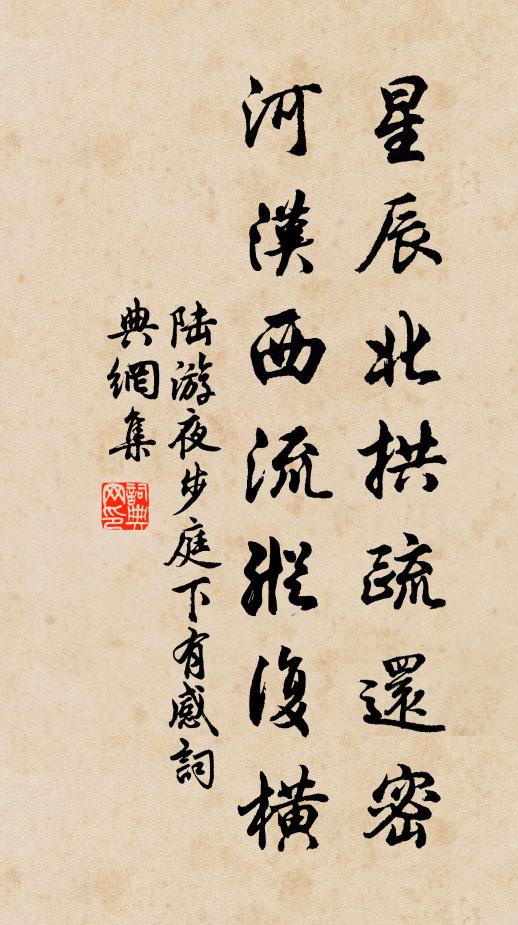 星辰北拱疏還密
河漢西流縱復橫
陆游夜步庭下有感詞
典網集
詞典网印